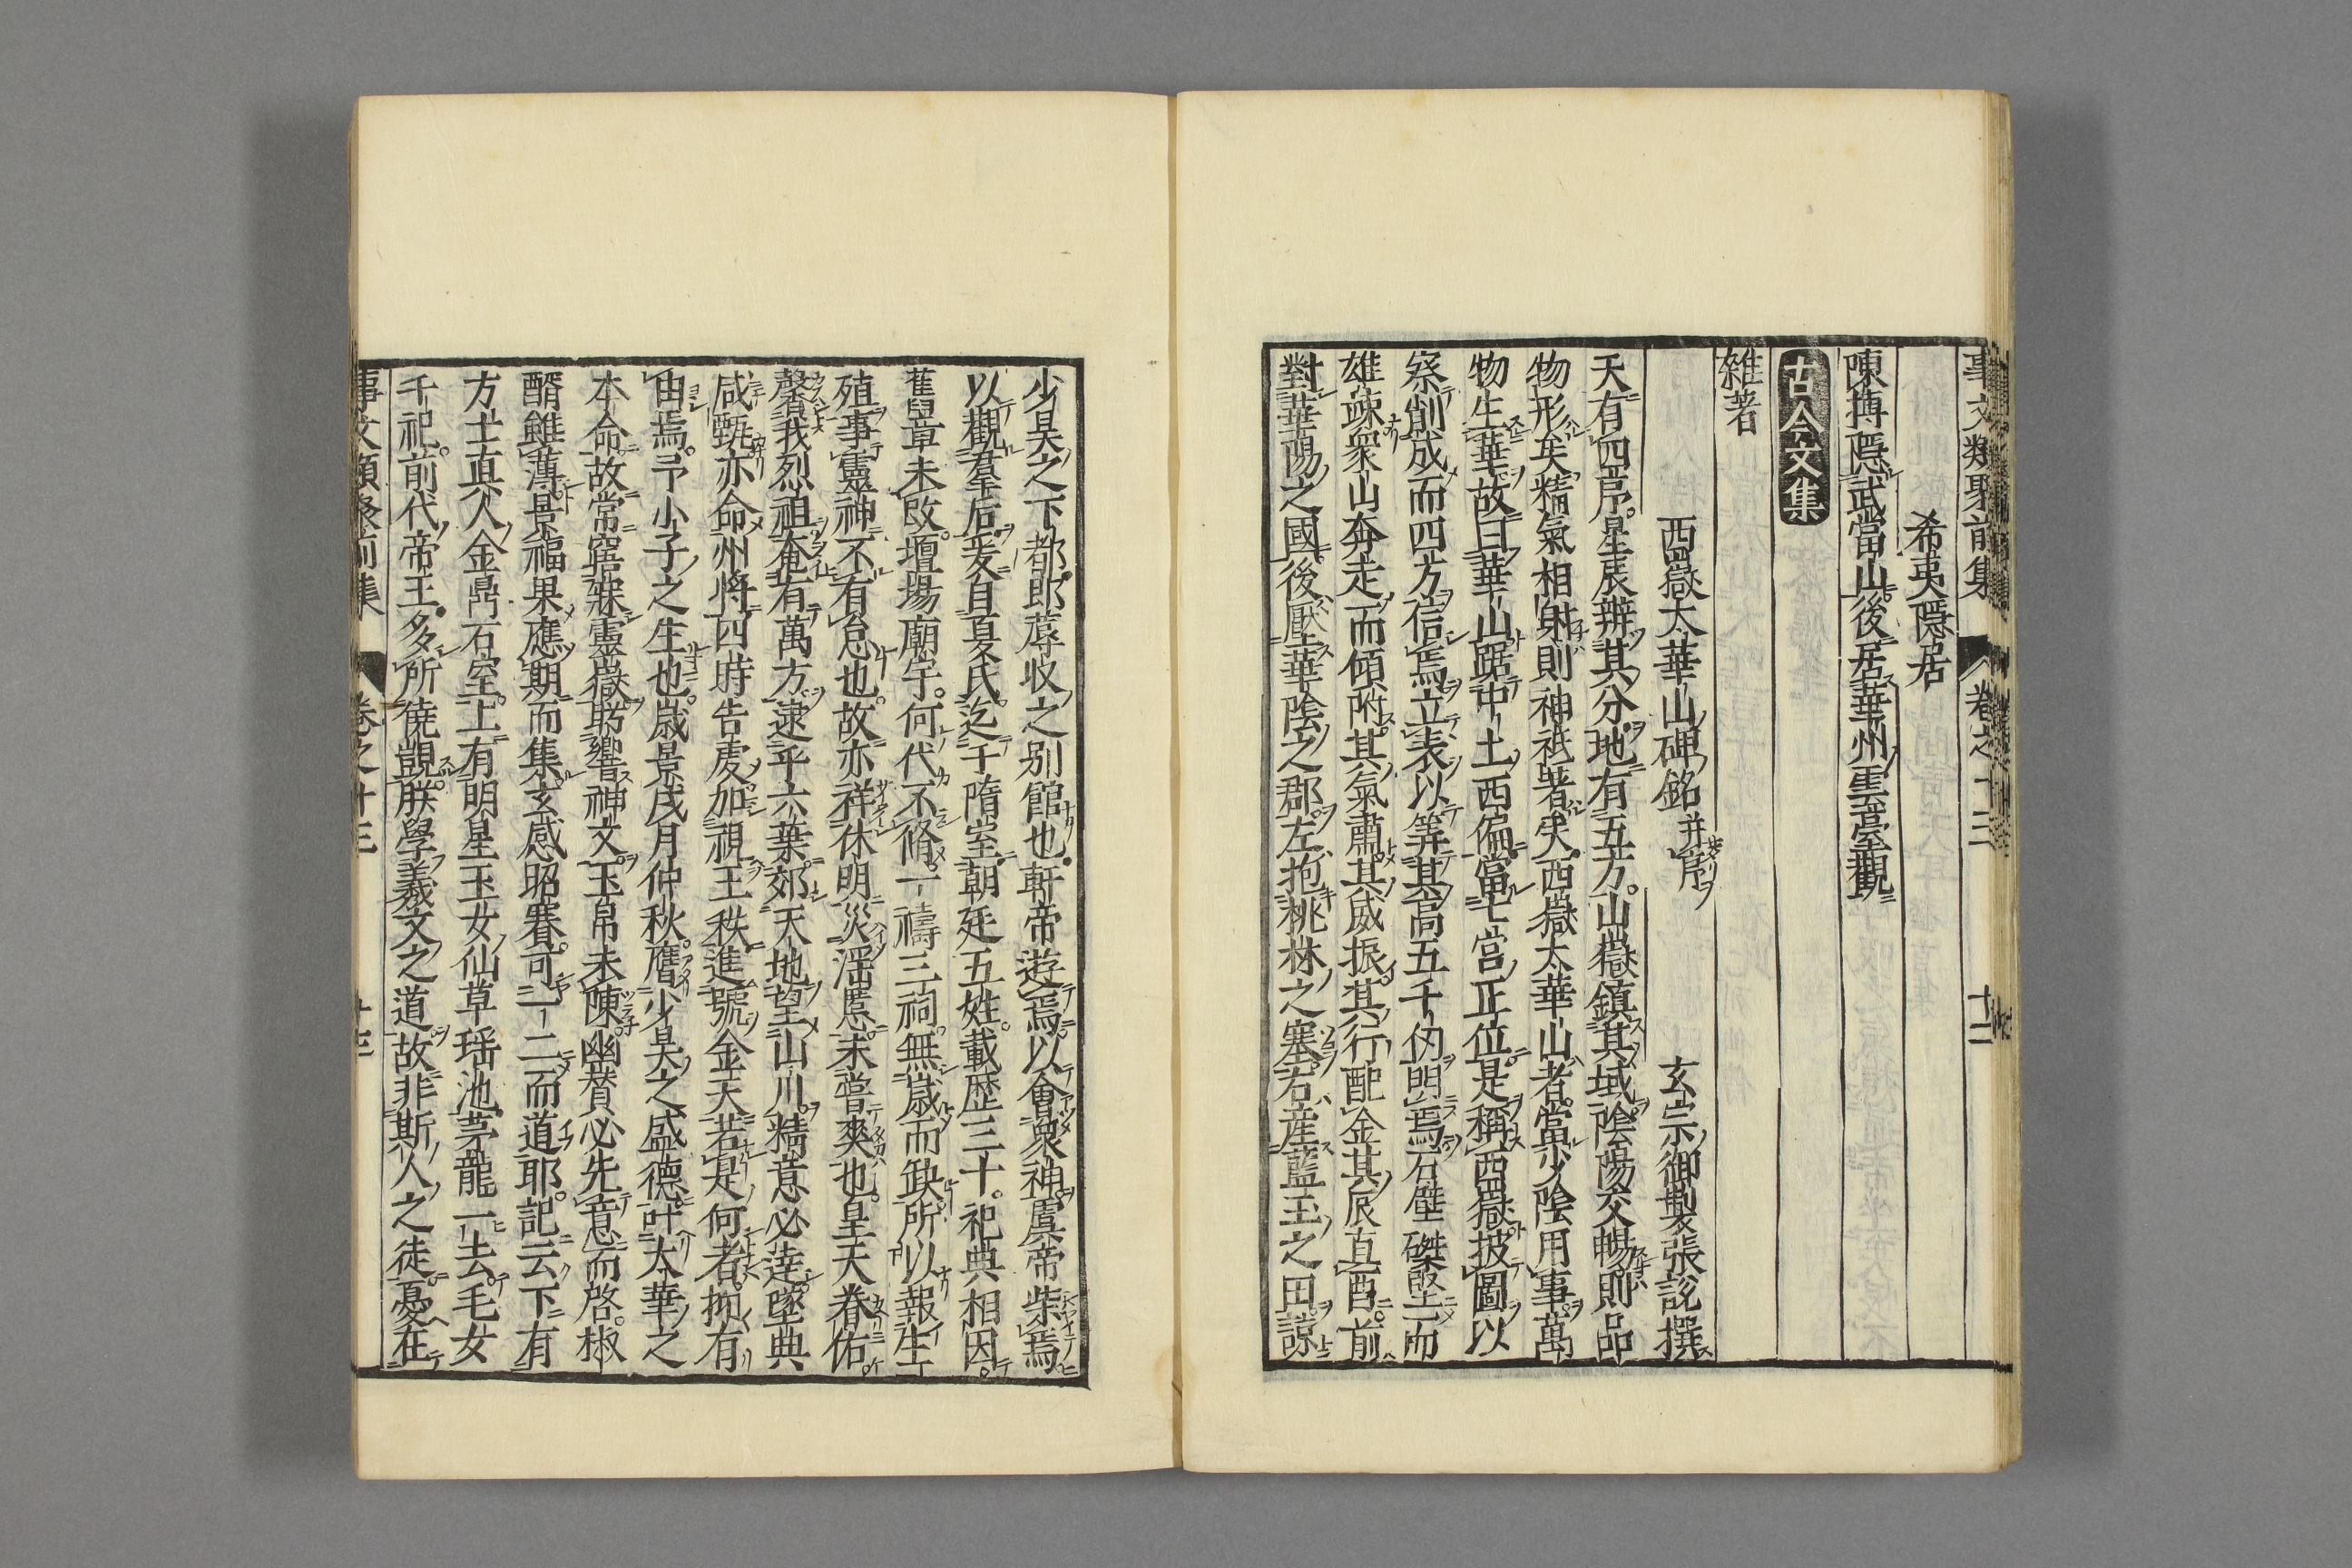 事文類聚前集 卷之十三 十二
希夷隱居
陳摶隱武當山後居華州雲臺觀
古今文集
雜著
西嶽太華山碑銘并序 玄宗御製張說撰
天有四序星辰辨其分地有五方山嶽鎮其域陰陽交暢則品
物形矣精氣相射則神祇著矣西嶽太華山者當少陰用事萬
物生華故曰華山踞中土西偏當七宮正位是稱西嶽披圖以
察削成而四方信焉立表以筭其高五千仞明焉石壁磔竪而
雄竦衆山奔走而傾附其氣肅其威振其行配金其辰直酉前
對華陽之國後壓華陰之郡左抱桃林之塞右産藍玉之田諒
少昊之下都郎蓐收之别館也軒帝遊焉以會衆神虞帝柴焉
以觀羣后爰自夏氏迄于隋室朝廷五姓載歷三十祀典相因
舊章未改壇場廟宇何代不脩一禱三祠無歲而缺所以報生
殖事靈神不有怠也故亦祥休明災淫慝未嘗爽也皇天眷佑
馨我烈祖奄有萬方逮乎六葉郊天地望山川精意必達墜典
咸甄亦命州將四時告虔加視王秩進號金天若是何者抑有
由焉予小子之生也歲景戌月仲秋膺少昊之盛德叶太華之
本命故常寤寐靈嶽肹響神交玉帛未陳幽賛必先意而啓椒
醑雖薄景福果應期而集玄感昭賽可一二而道耶記云下有
方士真人金鼎石室上有明星玉女仙草瑶池茅龍一去毛女
千祀前代帝王多所僥覬朕學羲文之道故非斯人之徒憂在
事文類聚前集 卷之十三 十三